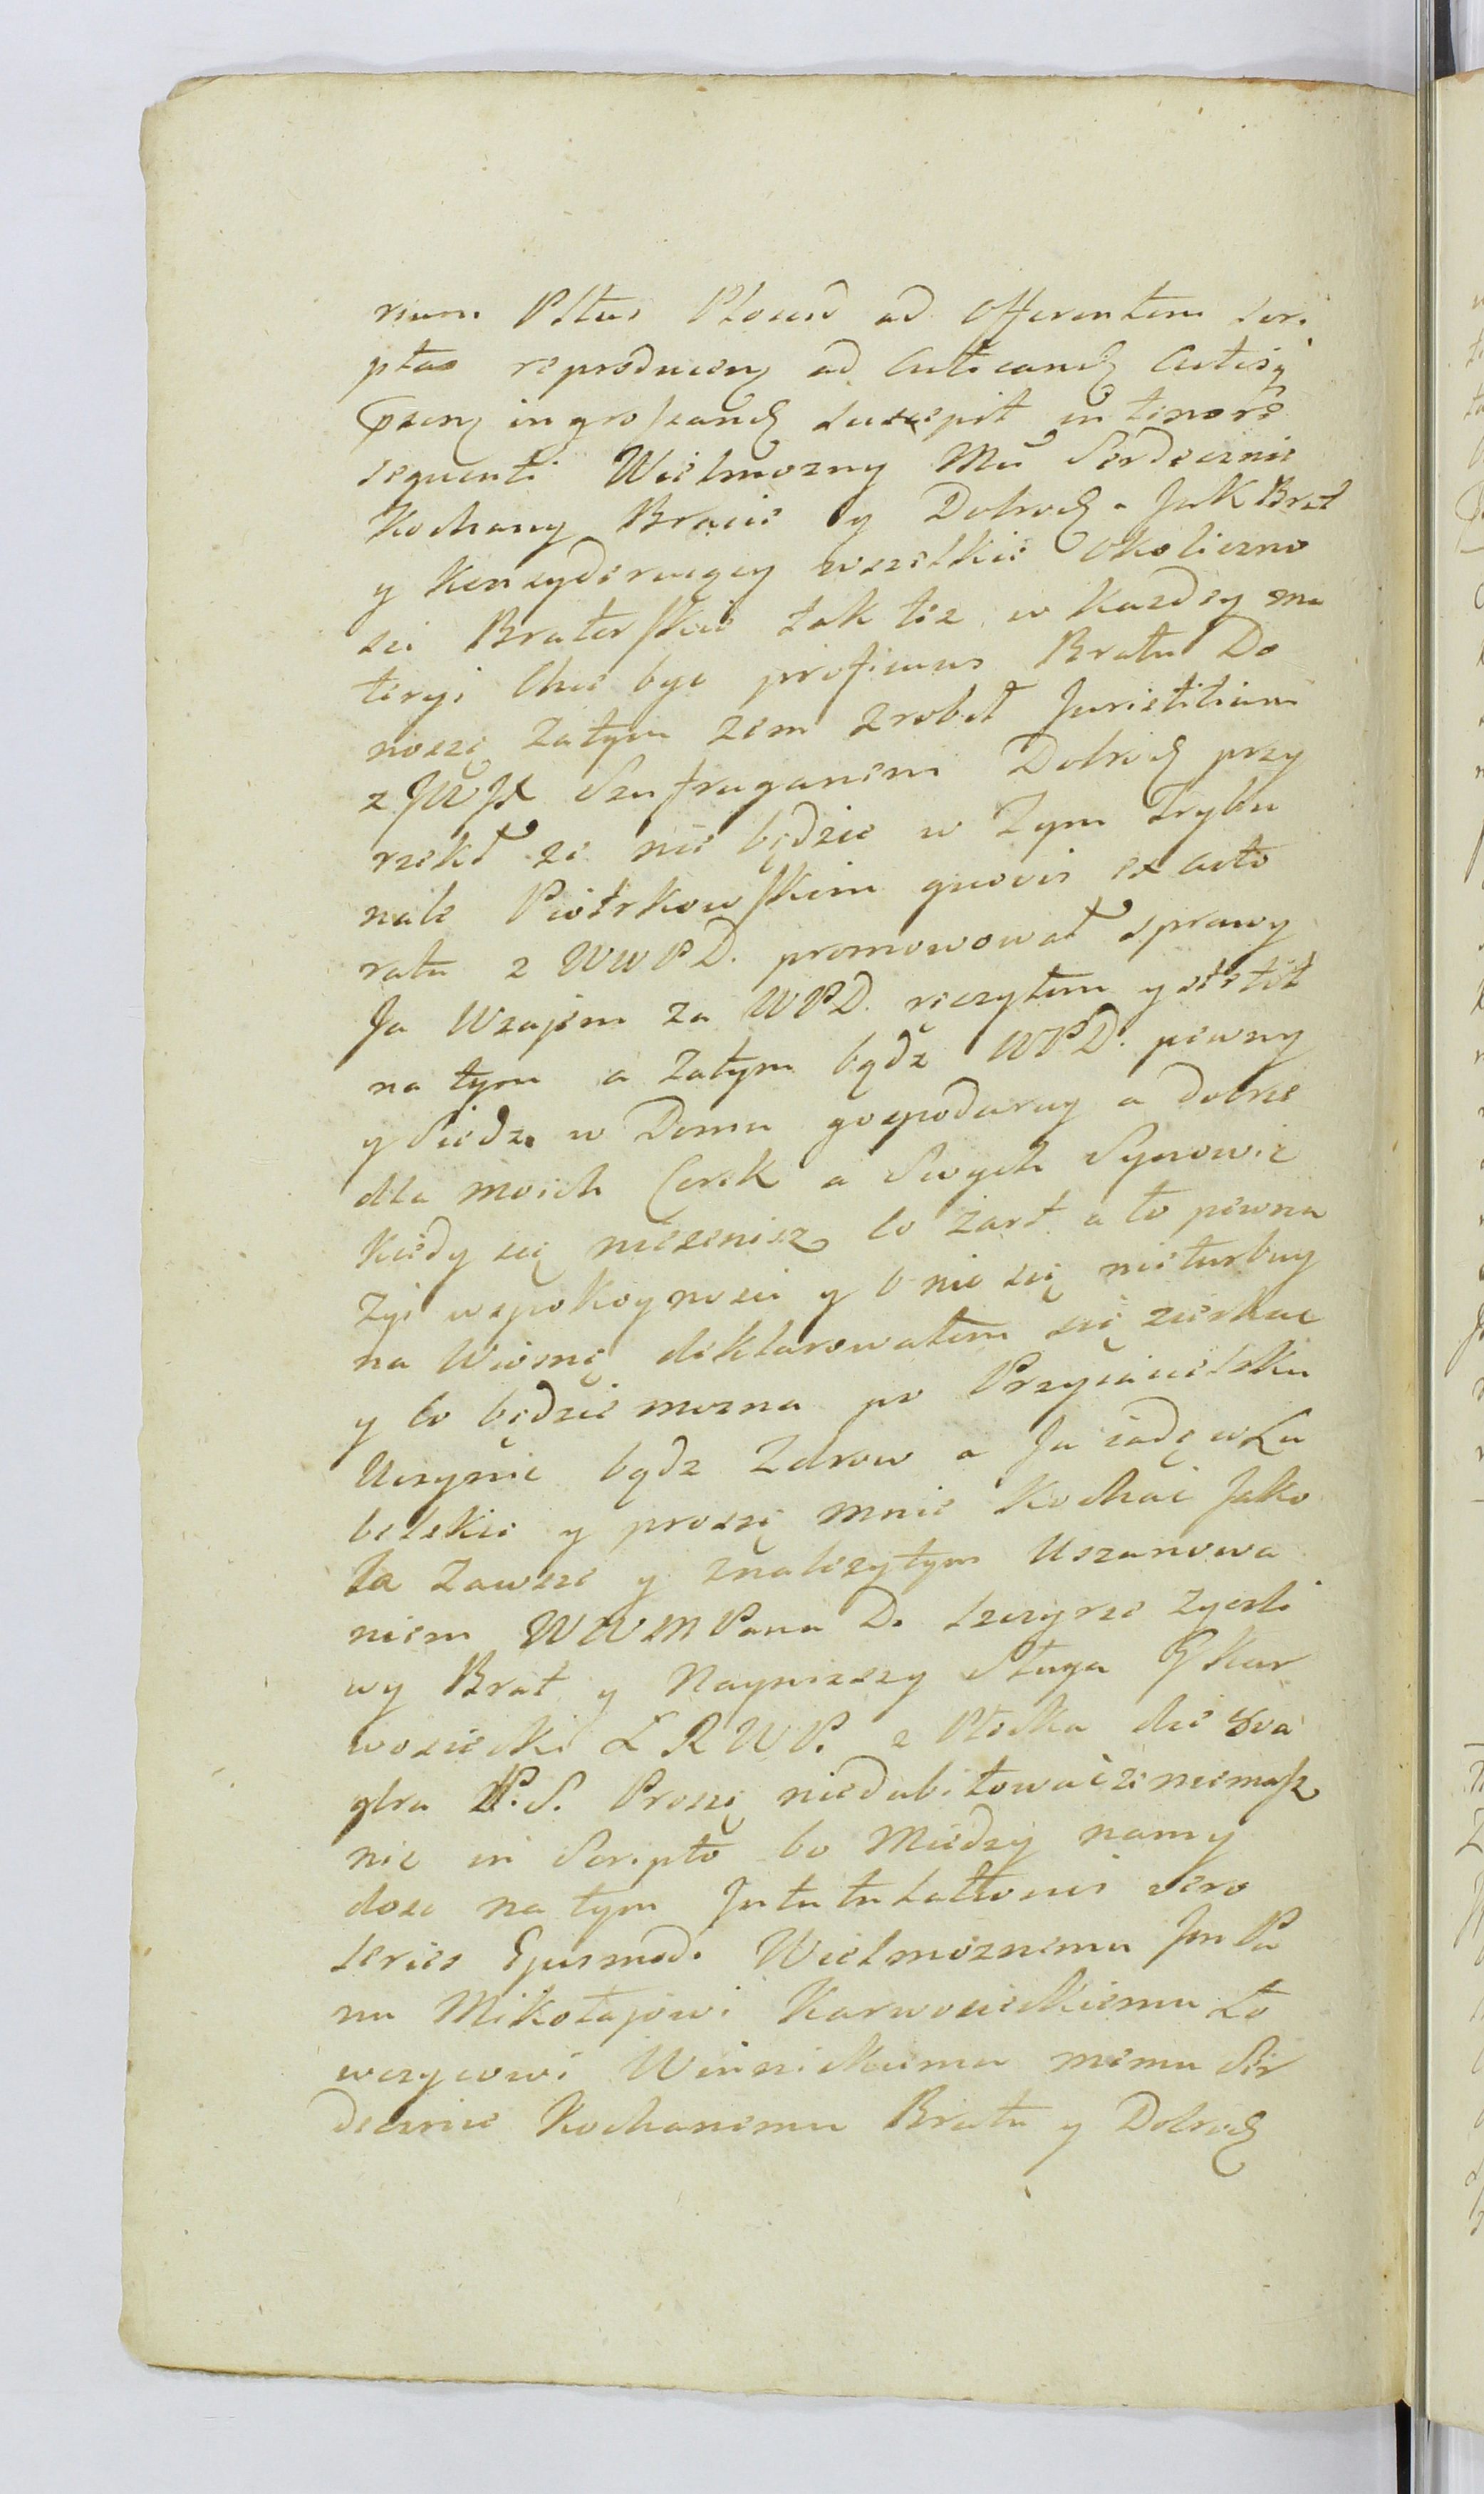 rium Pltus Plocens ad Offerentem scri
ptas reproducenꝫ ad Acticandꝫ Actisq
pnꝫ ingrossandꝫ suscepit in tenore
sequenti Wielmozny Mci Serdecznie
Kochany Bracie y Dobrodꝫ Jak Brat
y Konsyderuiący wszelkie Okoliczno
sci Braterskie tak tez w Kazdey ma
teryi Chce byc proficuus Bratu Do
noszę Zatym zem zrobił Juristitium
z JWJX Szufraganem Dobrodꝫ przy
rzekł ze nie będzie w Tym Trybu
nale Piotrkowskim quovis ex acto
ratu z WWPD. promowował sprawy
Ja Wzajem za WPD. ręczyłem y stetit
na tym a Zatym bądz WPD. pewny
y Siedz w Domu gospodaruy a dobrze
dla moich Corek a Swych Synowic
Kiedy się nieżenisz to żart a to pewna
Zyi wspokoynosci y o nic się nieturbuy
na Wiosnę deklarowałem się ziechac
y co będzie mozna po Przyiacielsku
Uczynic bądz Zdrow a Ja iadę w Lu
belskie y proszę mnie Kochac Jako
Ja Zawsze y znalezytym Uszanowa
niem WWMPana D. szczyrze zyczli
wy Brat y Naynizszy Sługa J Kar
wosiecki L R W P. z Płocka die 8va
gbra P.S. Proszę niedubitowac ze niemasz
nic in Scripto bo Miedzy namy
dosc na tym Intutulationis vero
series Ejusmodi Wielmoznemu Jm Pa
nu Mikołajowi Karwosieckiemu Ło
wczycowi Winnickiemu memu Ser
decznie Kochanemu Bratu y Dobrodꝫ